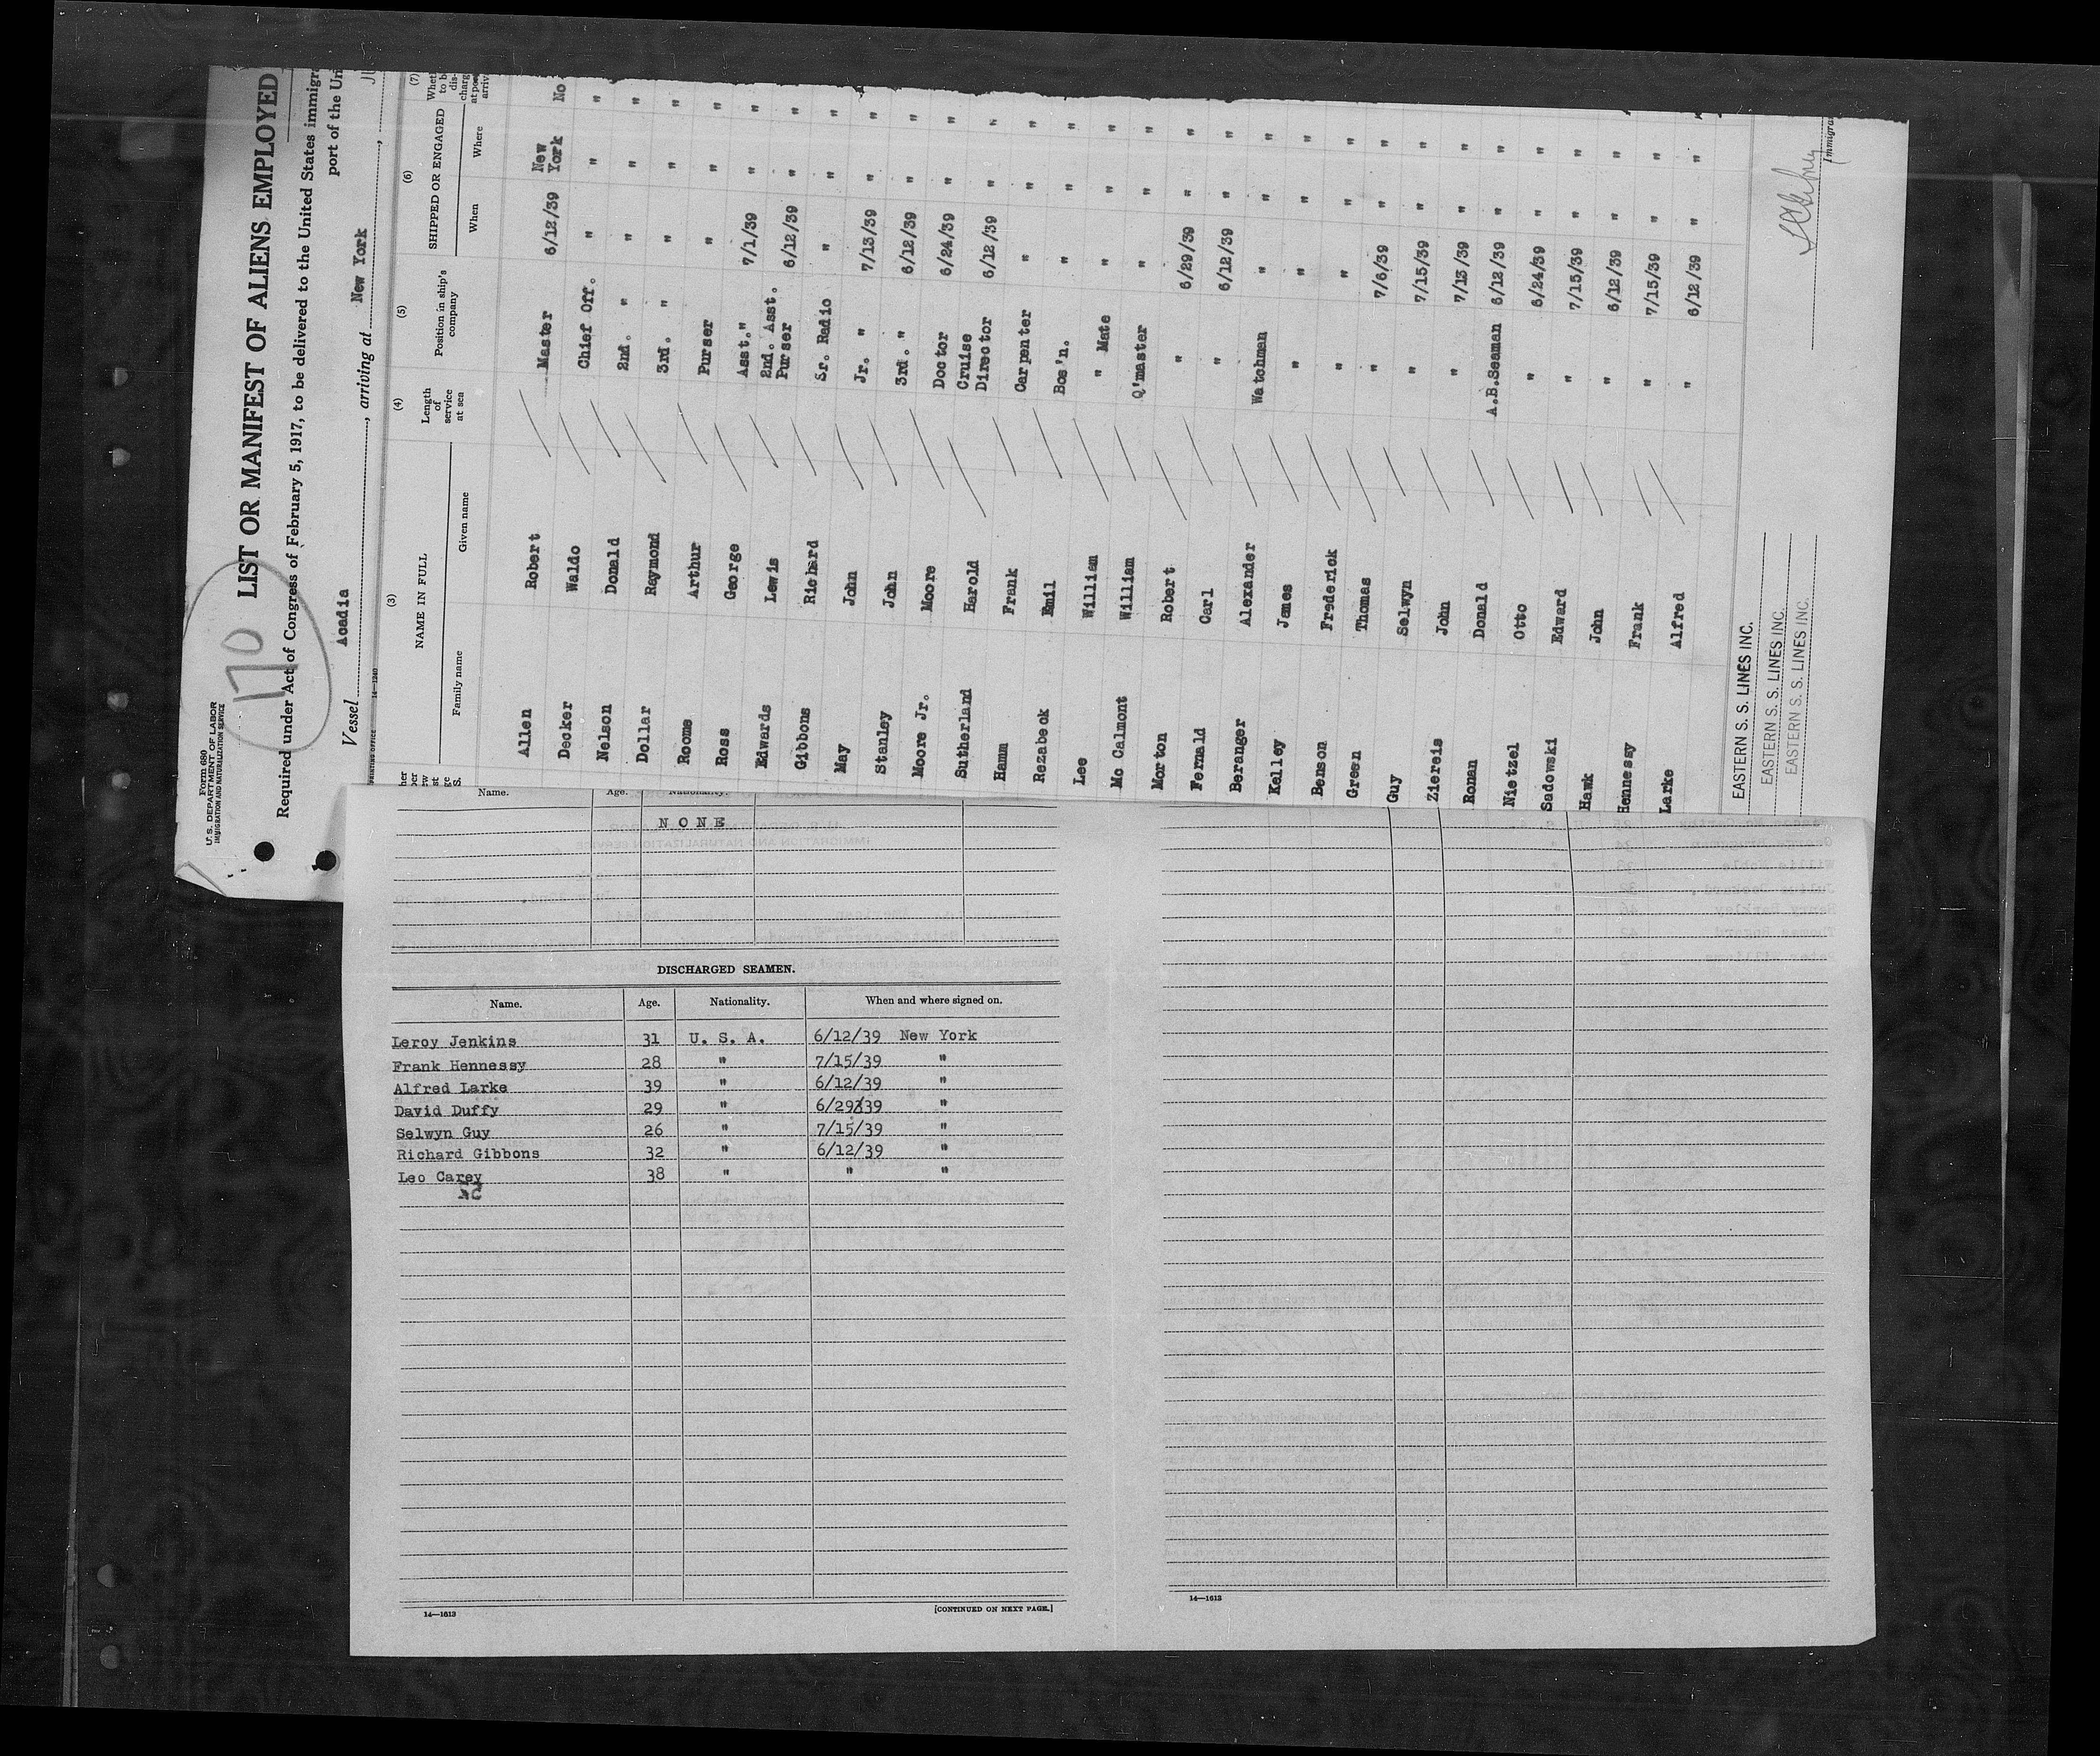 Form 680
U.S. DEPARTMENT OF LABOR
IMMIGRATION AND NATURALIZATION SERVICE
170
LIST OR MANIFEST OF ALIENS EMPLOYED
Required under Act of Congress of February 5, 1917, to be delivered to the United States immigra
port of the Un
Vessel Acadia, arriving at New York,
PRINTING OFFICE 14—1240
(3) (4) (5) (6) (7)
NAME IN FULL Length of service at sea Position in ship's company SHIPPED OR ENGAGED Wheth to be dis- charg at port arriv
Family name Given name When Where
Allen Robert Master 6/12/39 New York No
Decker Waldo Chief Off. " " "
Nelson Donald 2nd. " " " "
Dollar Raymond 3rd. " " " "
Roome Arthur Purser " " "
Ross George Asst." 7/1/39 " "
Edwards Lewis 2nd. Asst. Purser 6/12/39 " "
Gibbons Richard Sr. Radio " " "
May John Jr. " 7/13/39 " "
Stanley John 3rd. " 6/12/39 " "
Moore Jr. Moore Doctor 6/24/39 " "
Sutherland Harold Cruise Director 6/12/39 " "
Hamm Frank Carpenter " " "
Rezabeck Emil Bos'n. " " "
Lee William " Mate " " "
Mc Calmont William Q'master " " "
Morton Robert " 6/29/39 " "
Fernald Carl " 6/12/39 " "
Beranger Alexander Watchman " " "
Kelley James " " " "
Benson Frederick " " " "
Green Thomas " 7/6/39 " "
Guy Selwyn " 7/15/39 " "
Ziereis John " 7/13/39 " "
Ronan Donald A.B.Seaman 6/12/39 " "
Nietzel Otto " 6/24/39 " "
Sadowski Edward " 7/15/39 " "
Hawk John " 6/12/39 " "
Hennessy Frank " 7/15/39 " "
Larke Alfred " 6/12/39 " "
EASTERN S. S. LINES INC.
EASTERN S. S. LINES INC.
EASTERN S. S. LINES INC.
Immigran
Name. Age. Nationality.
NONE
DISCHARGED SEAMEN.
Name. Age. Nationality. When and where signed on.
Leroy Jenkins 31 U. S. A. 6/12/39 New York
Frank Hennessy 28 " 7/15/39 "
Alfred Larke 39 " 6/12/39 "
David Duffy 29 " 6/29/39 "
Selwyn Guy 26 " 7/15/39 "
Richard Gibbons 32 " 6/12/39 "
Leo Carey 38 " " "
14—1613 [CONTINUED ON NEXT PAGE.]
14—1613